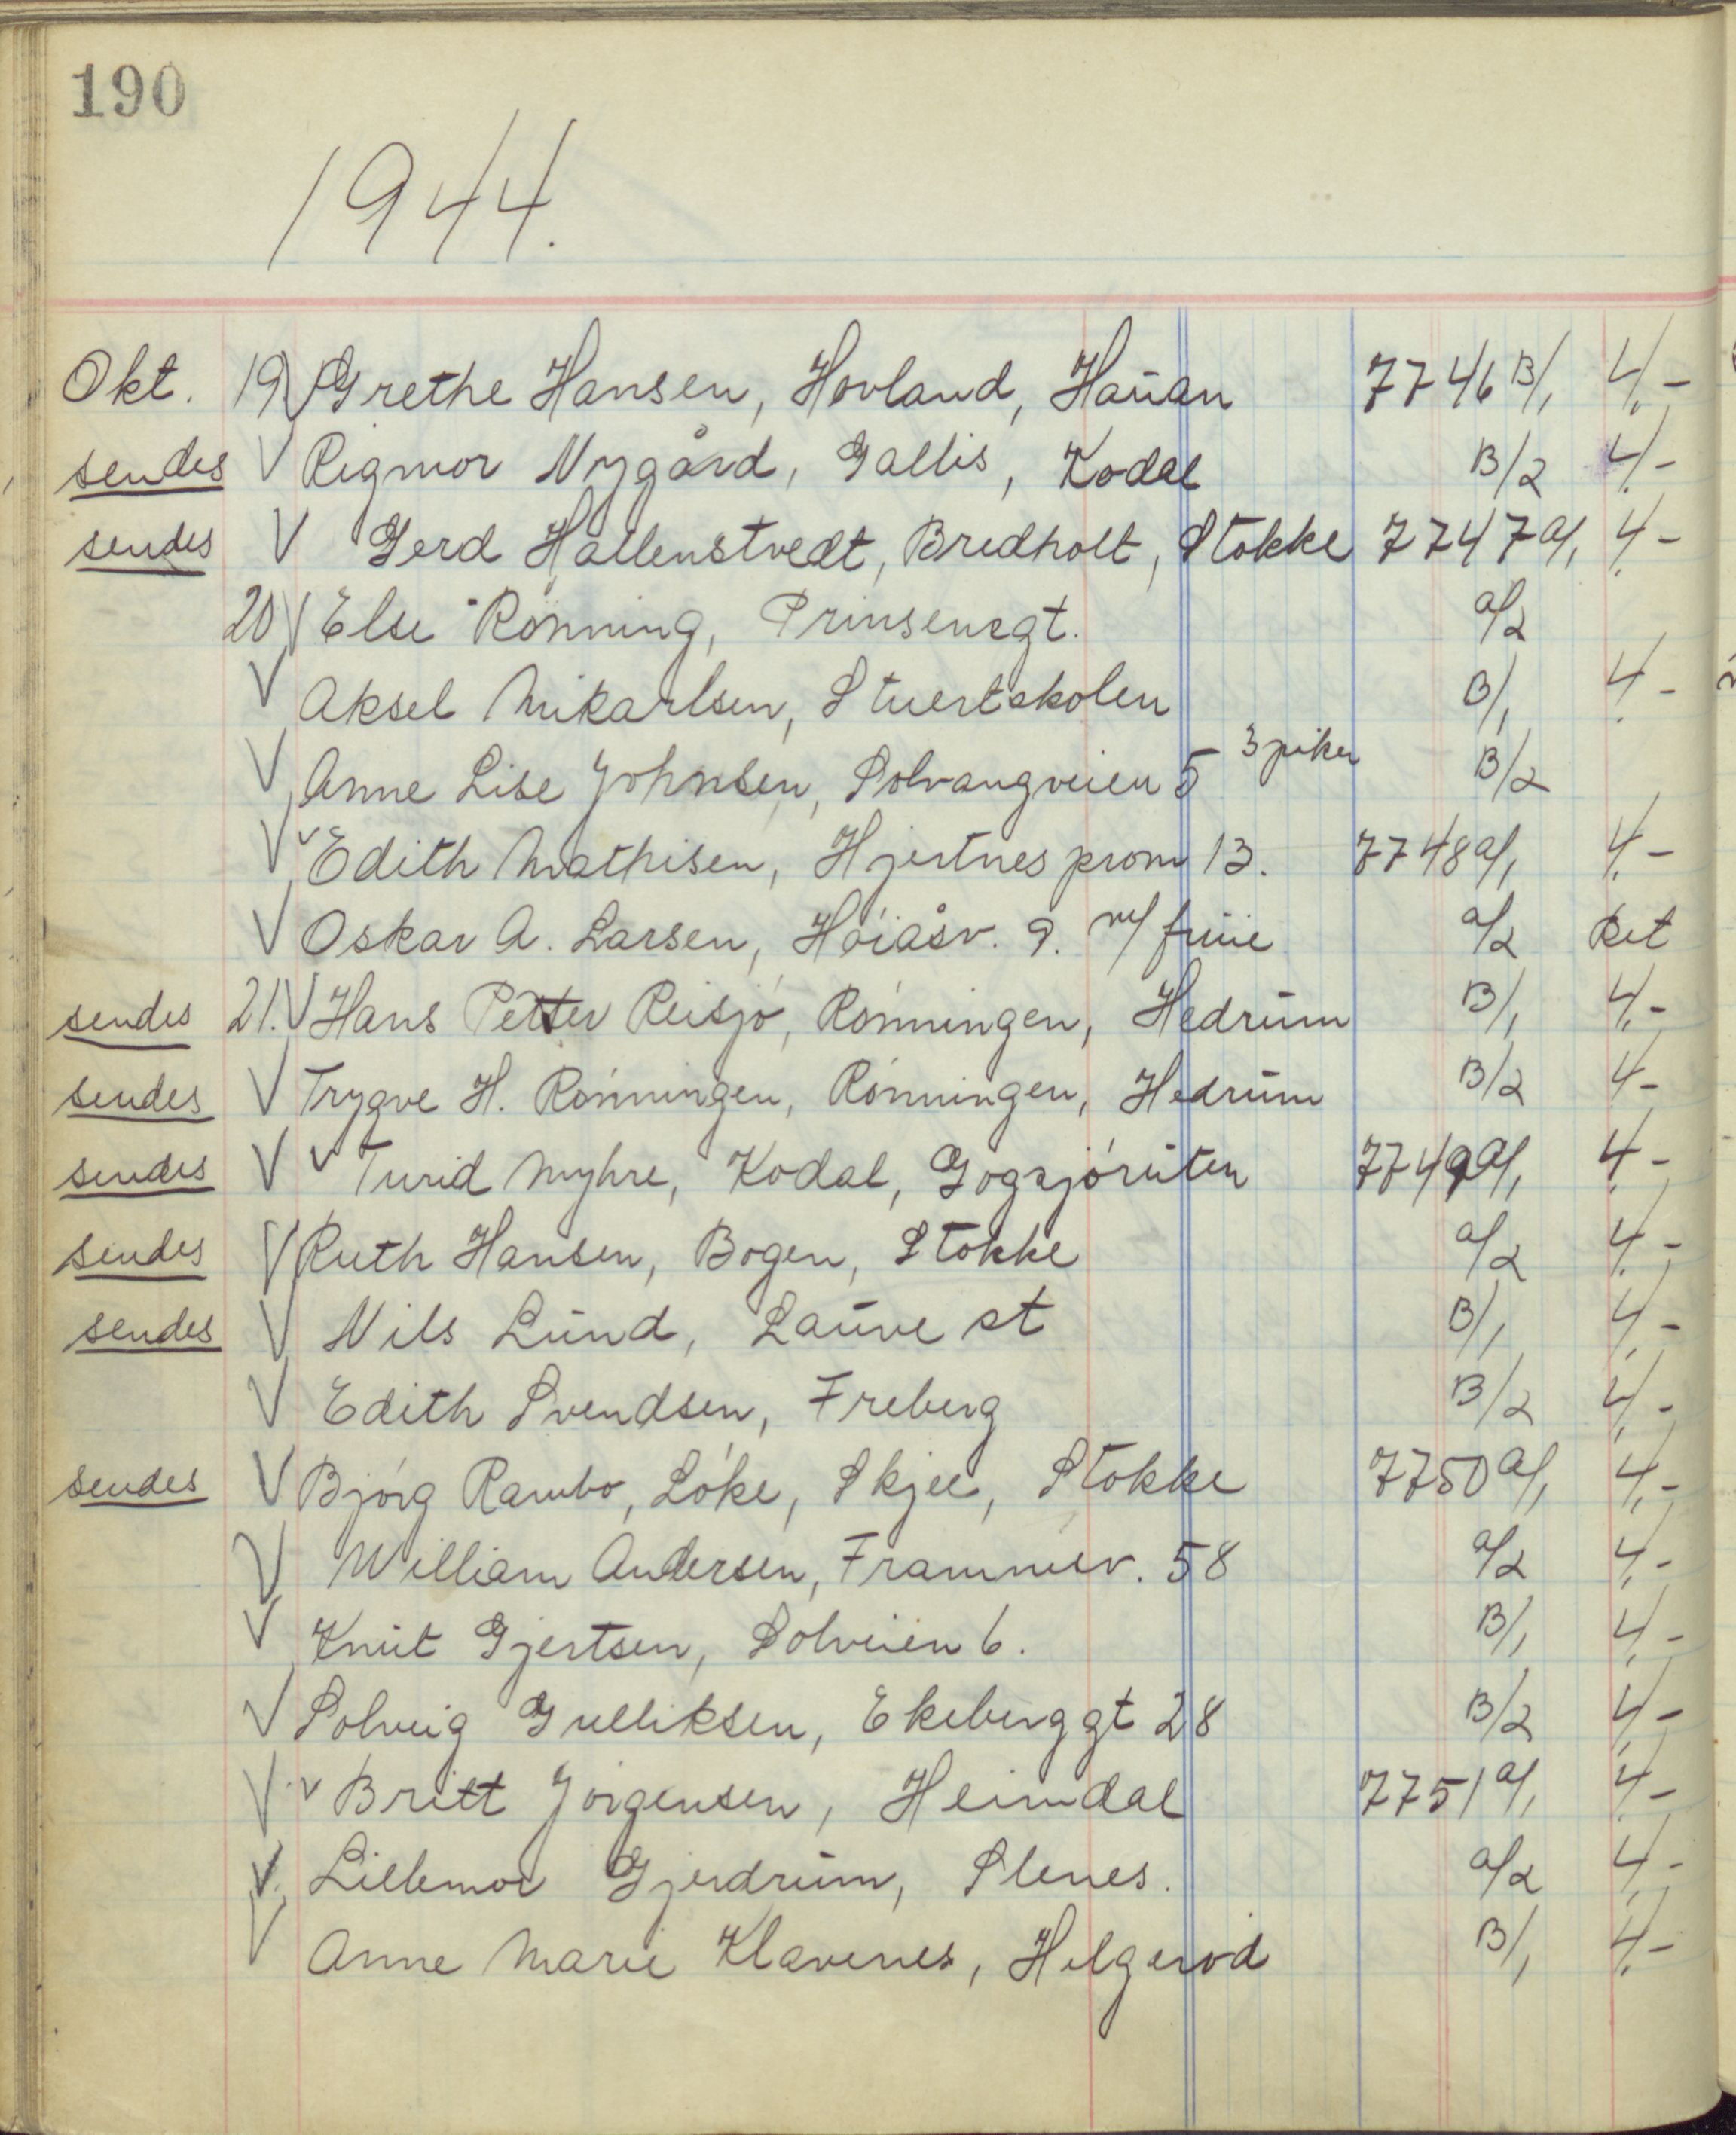 190
1944.
Okt. 19 V Grethe Hansen, Hovland, Hauan 7746 B/1 4,-
sendes V Rigmor Nygård, Gallis, Kodal B/2 4,-
sendes V Gerd Hallenstvedt, Bredholt, Stokke 7747 a/1 4,-
20 V Else Rönning, Prinsensgt. a/2
V Aksel Mikarlsen, Stuertskolen B/1 4,-
V Anne Lise Johnsen, Solvangveien 5 3 piker B/2
V v Edith Mathisen, Hjertnes prom 13. 7748 a/1 4,-
V Oskar A. Larsen, Höiåsv. 9. m/ frue a/2 Ret
sendes 21. V Hans Petter Reisjö, Rönningen, Hedrum B/1 4,-
sendes V Trygve H. Rönningen, Rönningen, Hedrum B/2 4,-
sendes V v Turid Myhre, Kodal, Gogsjöruten 7749 a/1 4,-
sendes V Ruth Hansen, Bogen, Stokke a/2 4,-
sendes V Nils Lund, Lauve st B/1 4,-
V Edith Svendsen, Freberg B/2 4,-
sendes V Björg Rambo, Löke, Skjee, Stokke 7750 a/1 4,-
V William Andersen, Framnesv. 58 a/2 4,-
V Knut Gjertsen, Solveien 6. B/1 4,-
V Solveig Gulliksen, Ekeberggt 28 B/2 4,-
V v Britt Jörgensen, Heimdal 7751 a/1 4,-
V Lillemor Gjerdrum, Slenes. a/2 4,-
V Anne Marie Klavenes, Helgeröd B/1 4,-